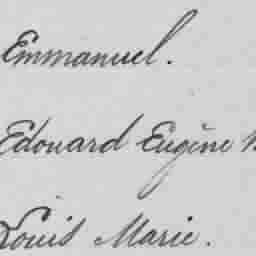 Emmanuel.
Edouard Eugène
Louis Marie.